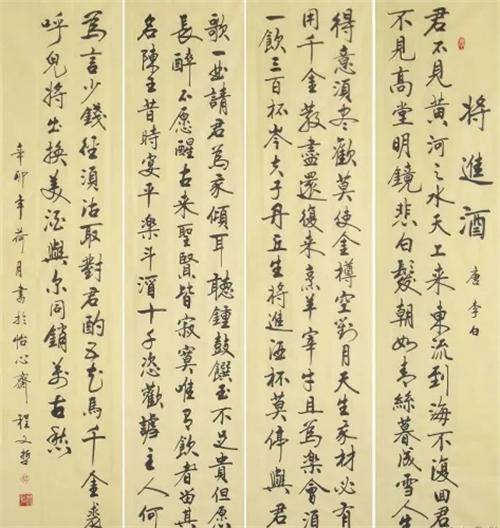 將進酒
唐 李白
君不見黃河之水天上来東流到海不復回君
不見高堂明鏡悲白髮朝如青絲暮成雪人
得意須盡歡莫使金樽空對月天生我材必有
用千金散盡還復来烹羊宰牛且為樂會須
一飲三百杯岑夫子丹丘生將進酒杯莫停與君
歌一曲請君為我傾耳聽鍾鼓饌玉不足貴但愿
長醉不愿醒古来聖賢皆寂寞唯有飲者留其
名陳王昔時宴平樂斗酒十千恣歡謔主人何
為言少錢徑須沽取對君酌五花馬千金裘
呼兒將出換美酒與尔同銷萬古愁
辛卯年荷月書於怡心齋 程文哲